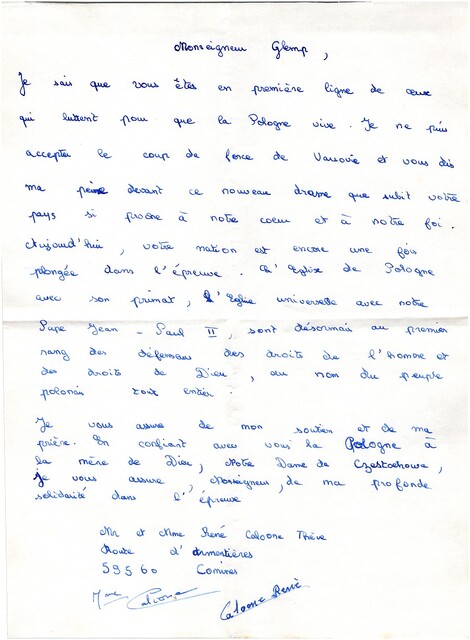 Monseigneur Glemp,
Je sais que vous êtes en première ligne de ceux
qui luttent pour que la Pologne vive. Je ne puis
accepter le coup de force de Varsovie et vous dis
ma peine devant ce nouveau drame que subit votre
pays si proche à notre coeur et à notre foi.
Aujourd'hui, votre nation est encore une fois
plongée dans l'épreuve. L'Eglise de Pologne
avec son primat, l'Eglise universelle avec notre
Pape Jean-Paul II, sont désormais au premier
rang des défenseurs des droits de l'homme et
des droits de Dieu, au nom du peuple
polonais tout entier.
Je vous assure de mon soutien et de ma
prière. En confiant avec vous la Pologne à
la mère de Dieu, Notre Dame de Czestochowa,
je vous assure, Monseigneur, de ma profonde
solidarité dans l'épreuve
Mr et Mme René Caloone Thève
Route d'Armentières
59560 Comines
Mme Caloone
Caloone René